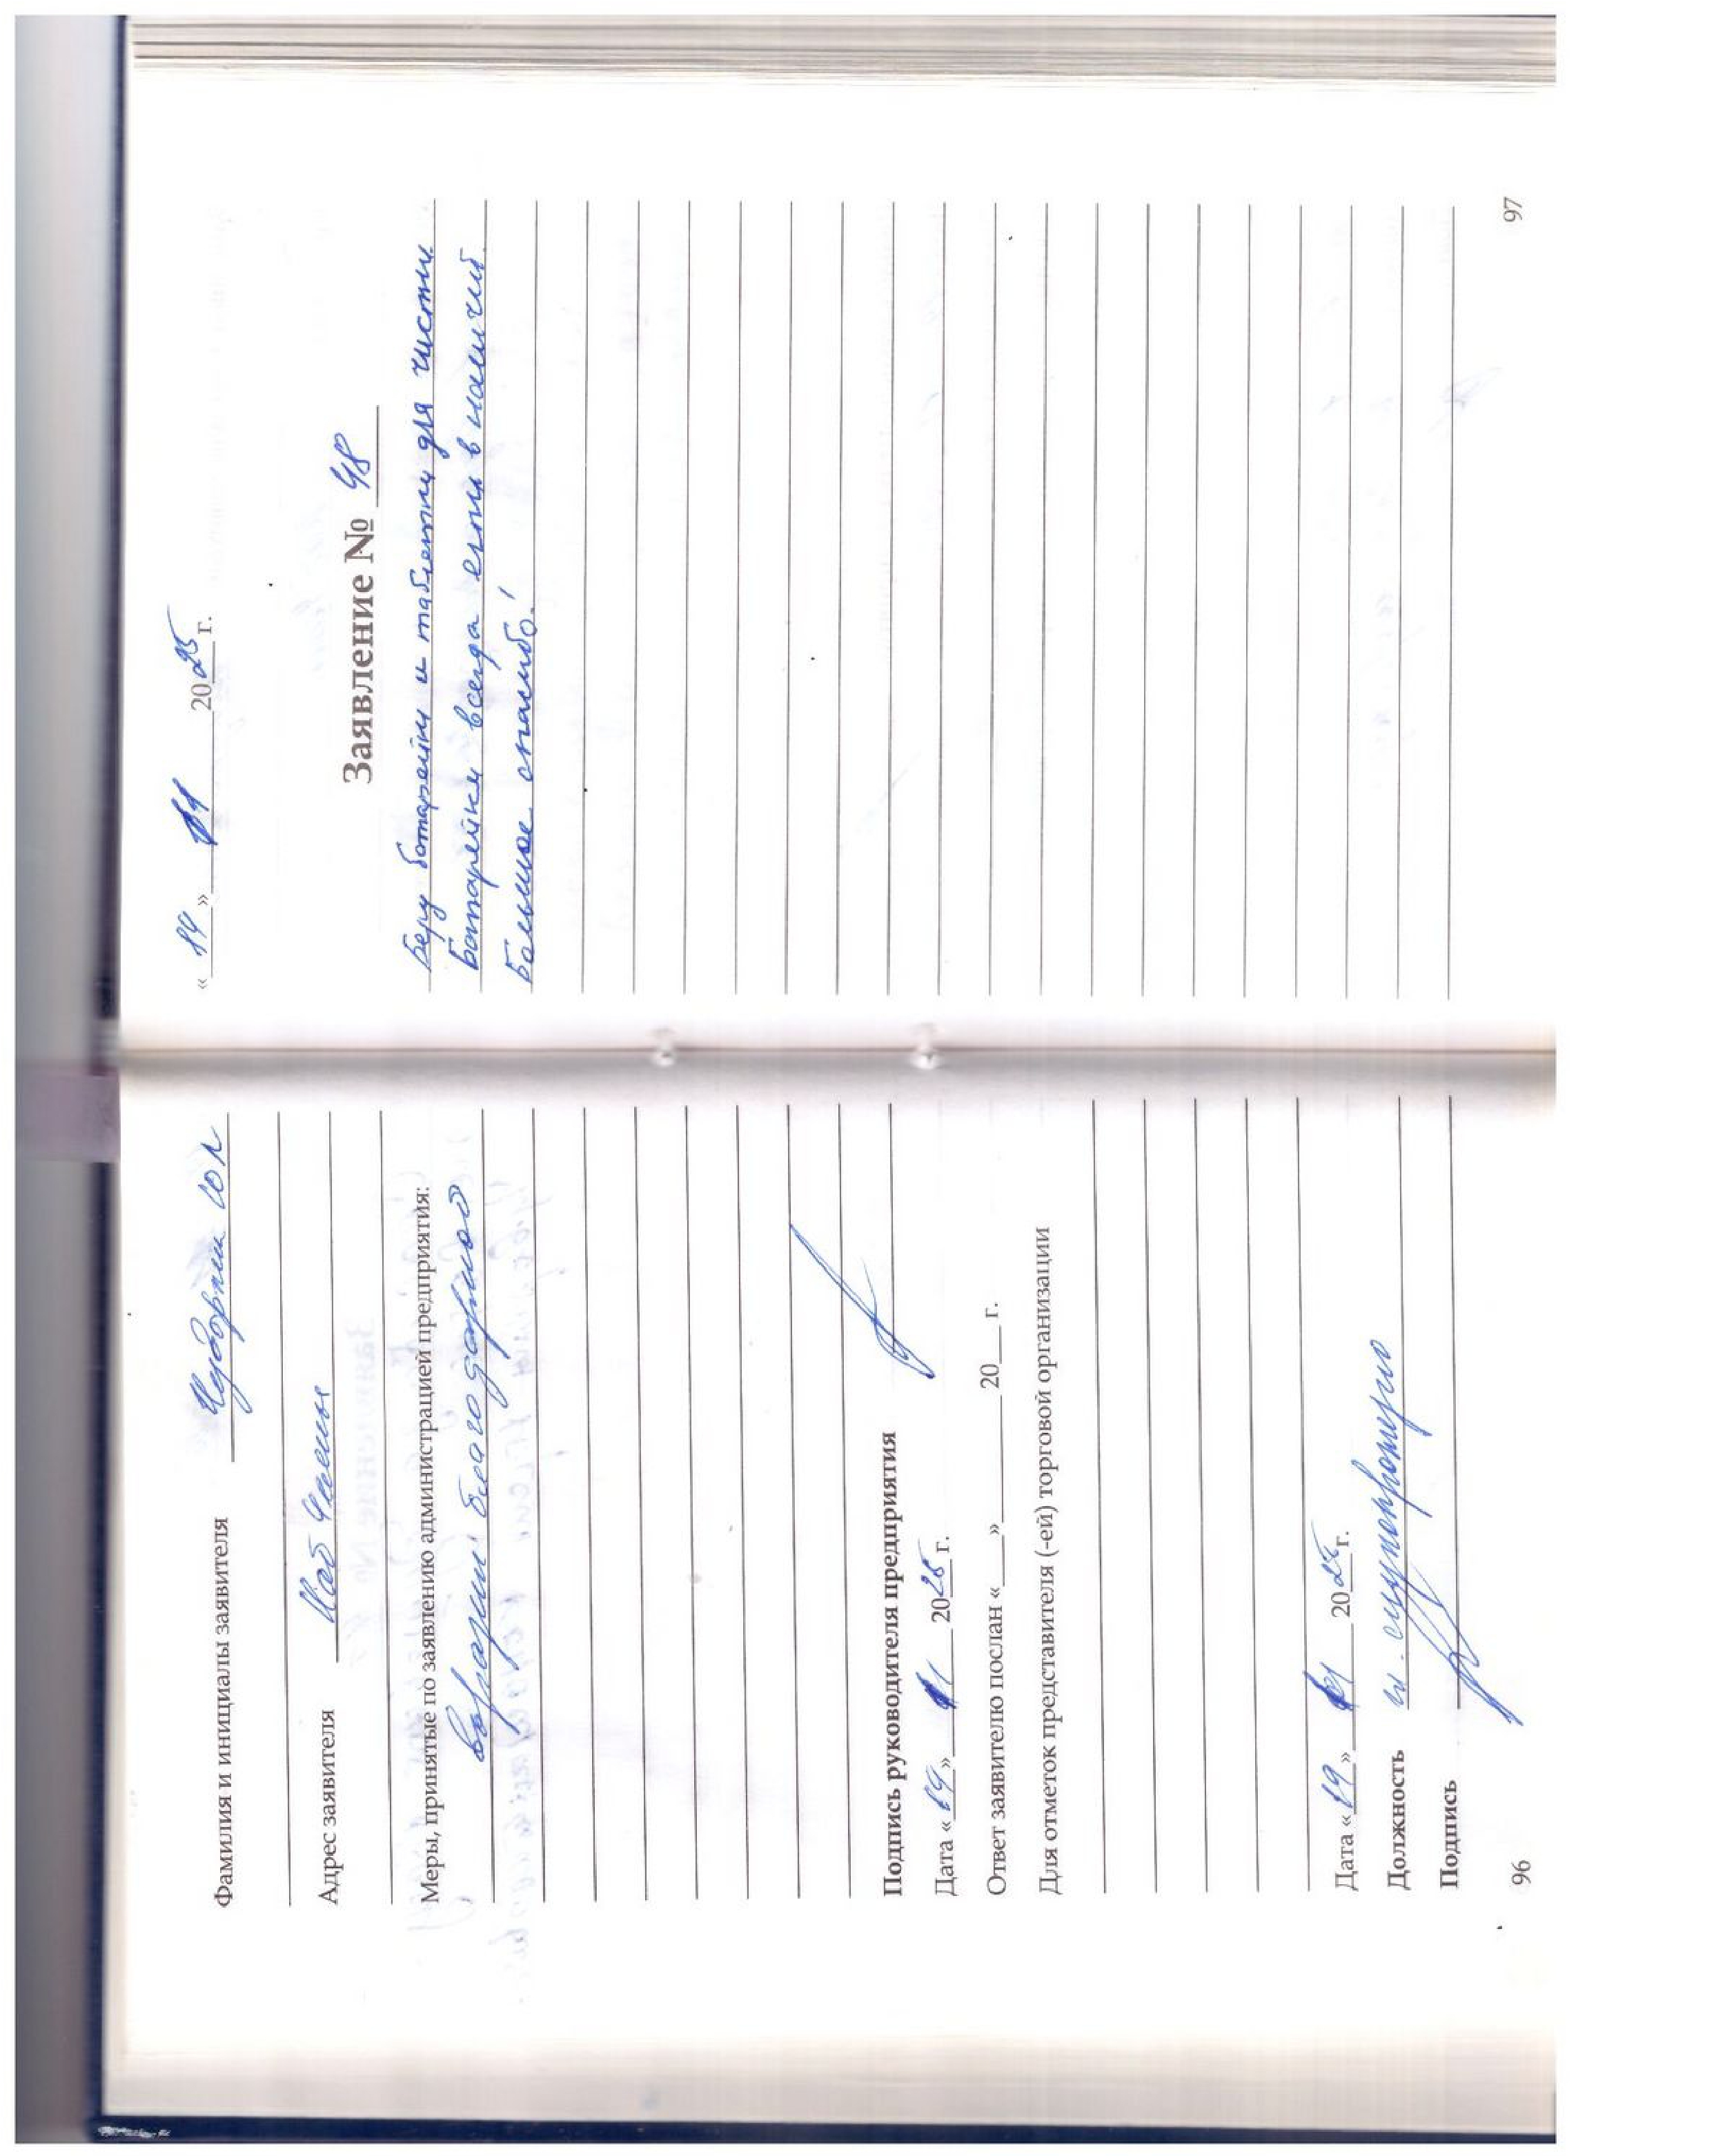 Фамилия и инициалы заявителя
Адрес заявителя
Меры, принятые по заявлению администрацией предприятия:
выразили благодарность
Подпись руководителя предприятия
Дата «14» 11 2025 г.
Ответ заявителю послан «___»________ 20___ г.
Для отметок представителя (-ей) торговой организации
Дата «14» 11 2025 г.
Должность
Подпись
96
«14» 11 2025 г.
Заявление № 48
Беру батарейки и таблетки для чистки
Батарейки всегда есть в наличий.
Большое спасибо!
97